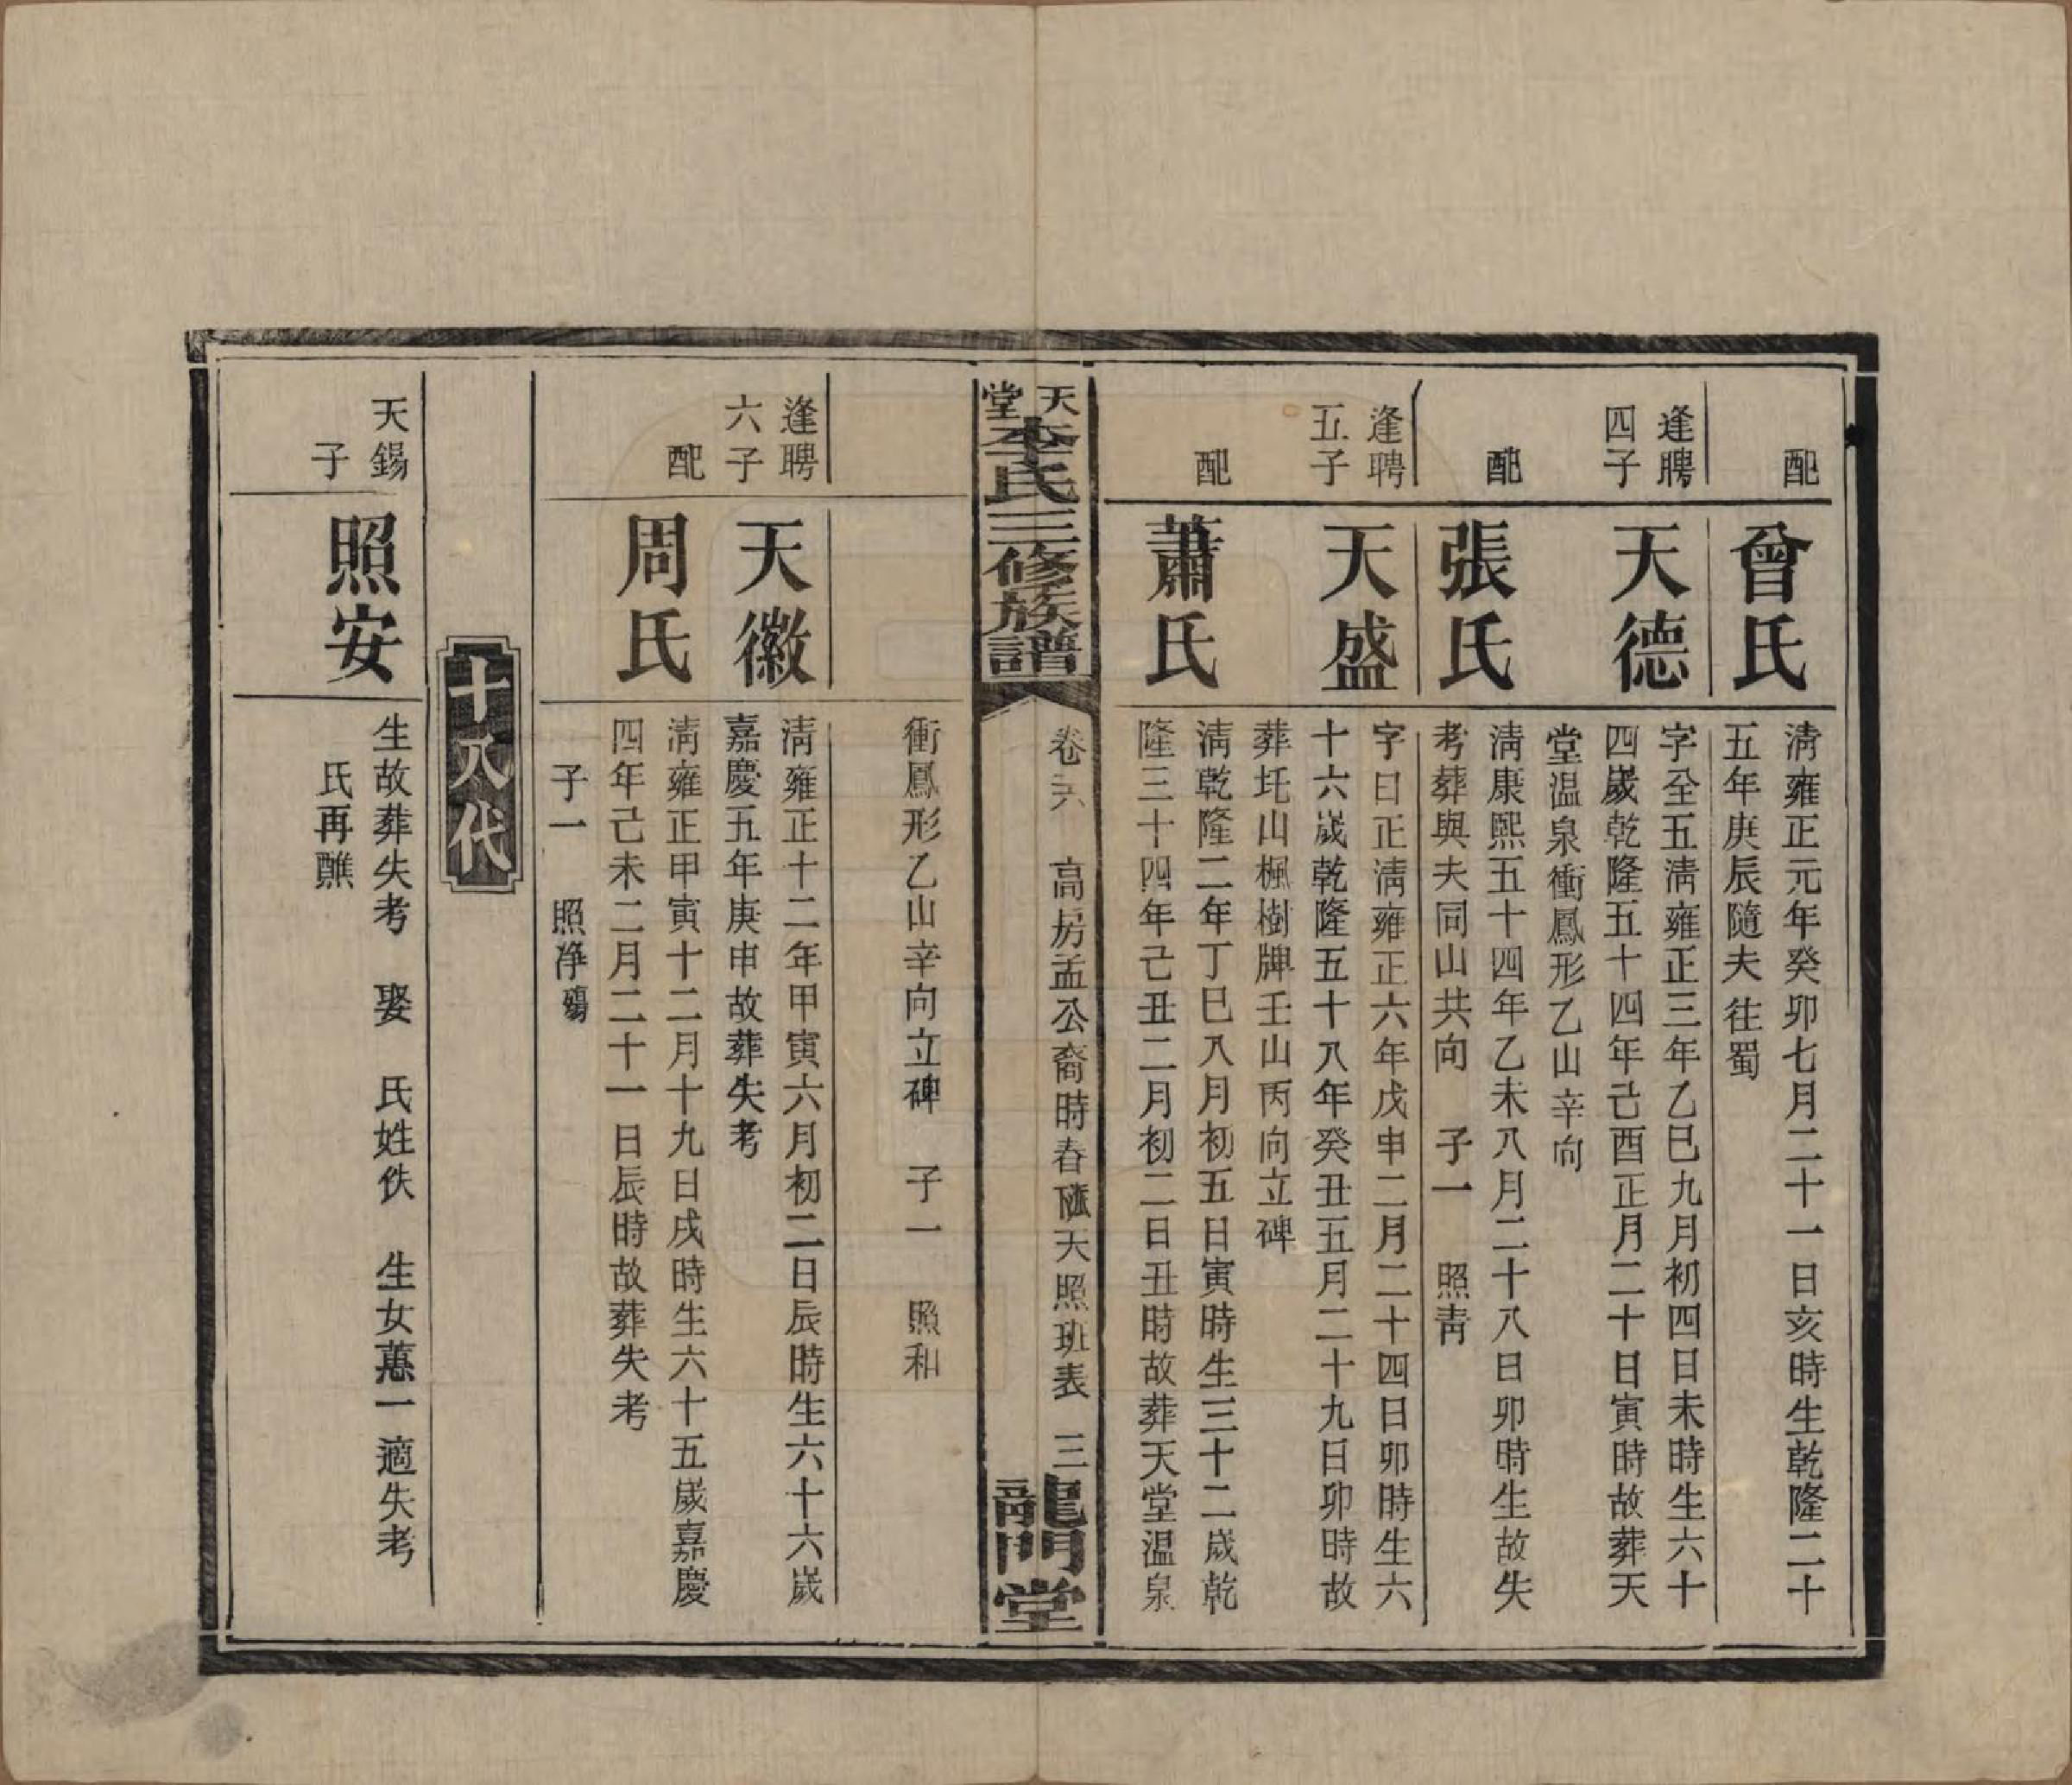 配
曾氏
淸雍正元年癸卯七月二十一日亥時生乾隆二十
五年庚辰隨夫往蜀
逢聘
四子
天德
字全五淸雍正三年乙巳九月初四日未時生六十
四歲乾隆五十四年己酉正月二十日寅時故葬天
堂温泉衝鳳形乙山辛向
配
張氏
淸康熙五十四年乙未八月二十八日卯時生故失
考葬與夫同山共向 子一 照靑
逢聘
五子
天盛
字日正淸雍正六年戊申二月二十四日卯時生六
十六歲乾隆五十八年癸丑五月二十九日卯時故
葬圫山楓樹牌壬山丙向立碑
配
蕭氏
淸乾隆二年丁巳八月初五日寅時生三十二歲乾
隆三十四年己丑二月初二日丑時故葬天堂温泉
天堂李氏三修族譜
卷六 高房孟公裔時春 天照班表 三
龍門堂
衝鳳形乙山辛向立碑 子一 照和
逢聘
六子
天徽
淸雍正十二年甲寅六月初二日辰時生六十六歲
嘉慶五年庚申故葬失考
配
周氏
淸雍正甲寅十二月十九日戌時生六十五歲嘉慶
四年己未二月二十一日辰時故葬失考
子一 照淨殤
十八代
天錫
子
照安
生故葬失考 娶 氏姓佚 生女蕙一適失考
氏再醮